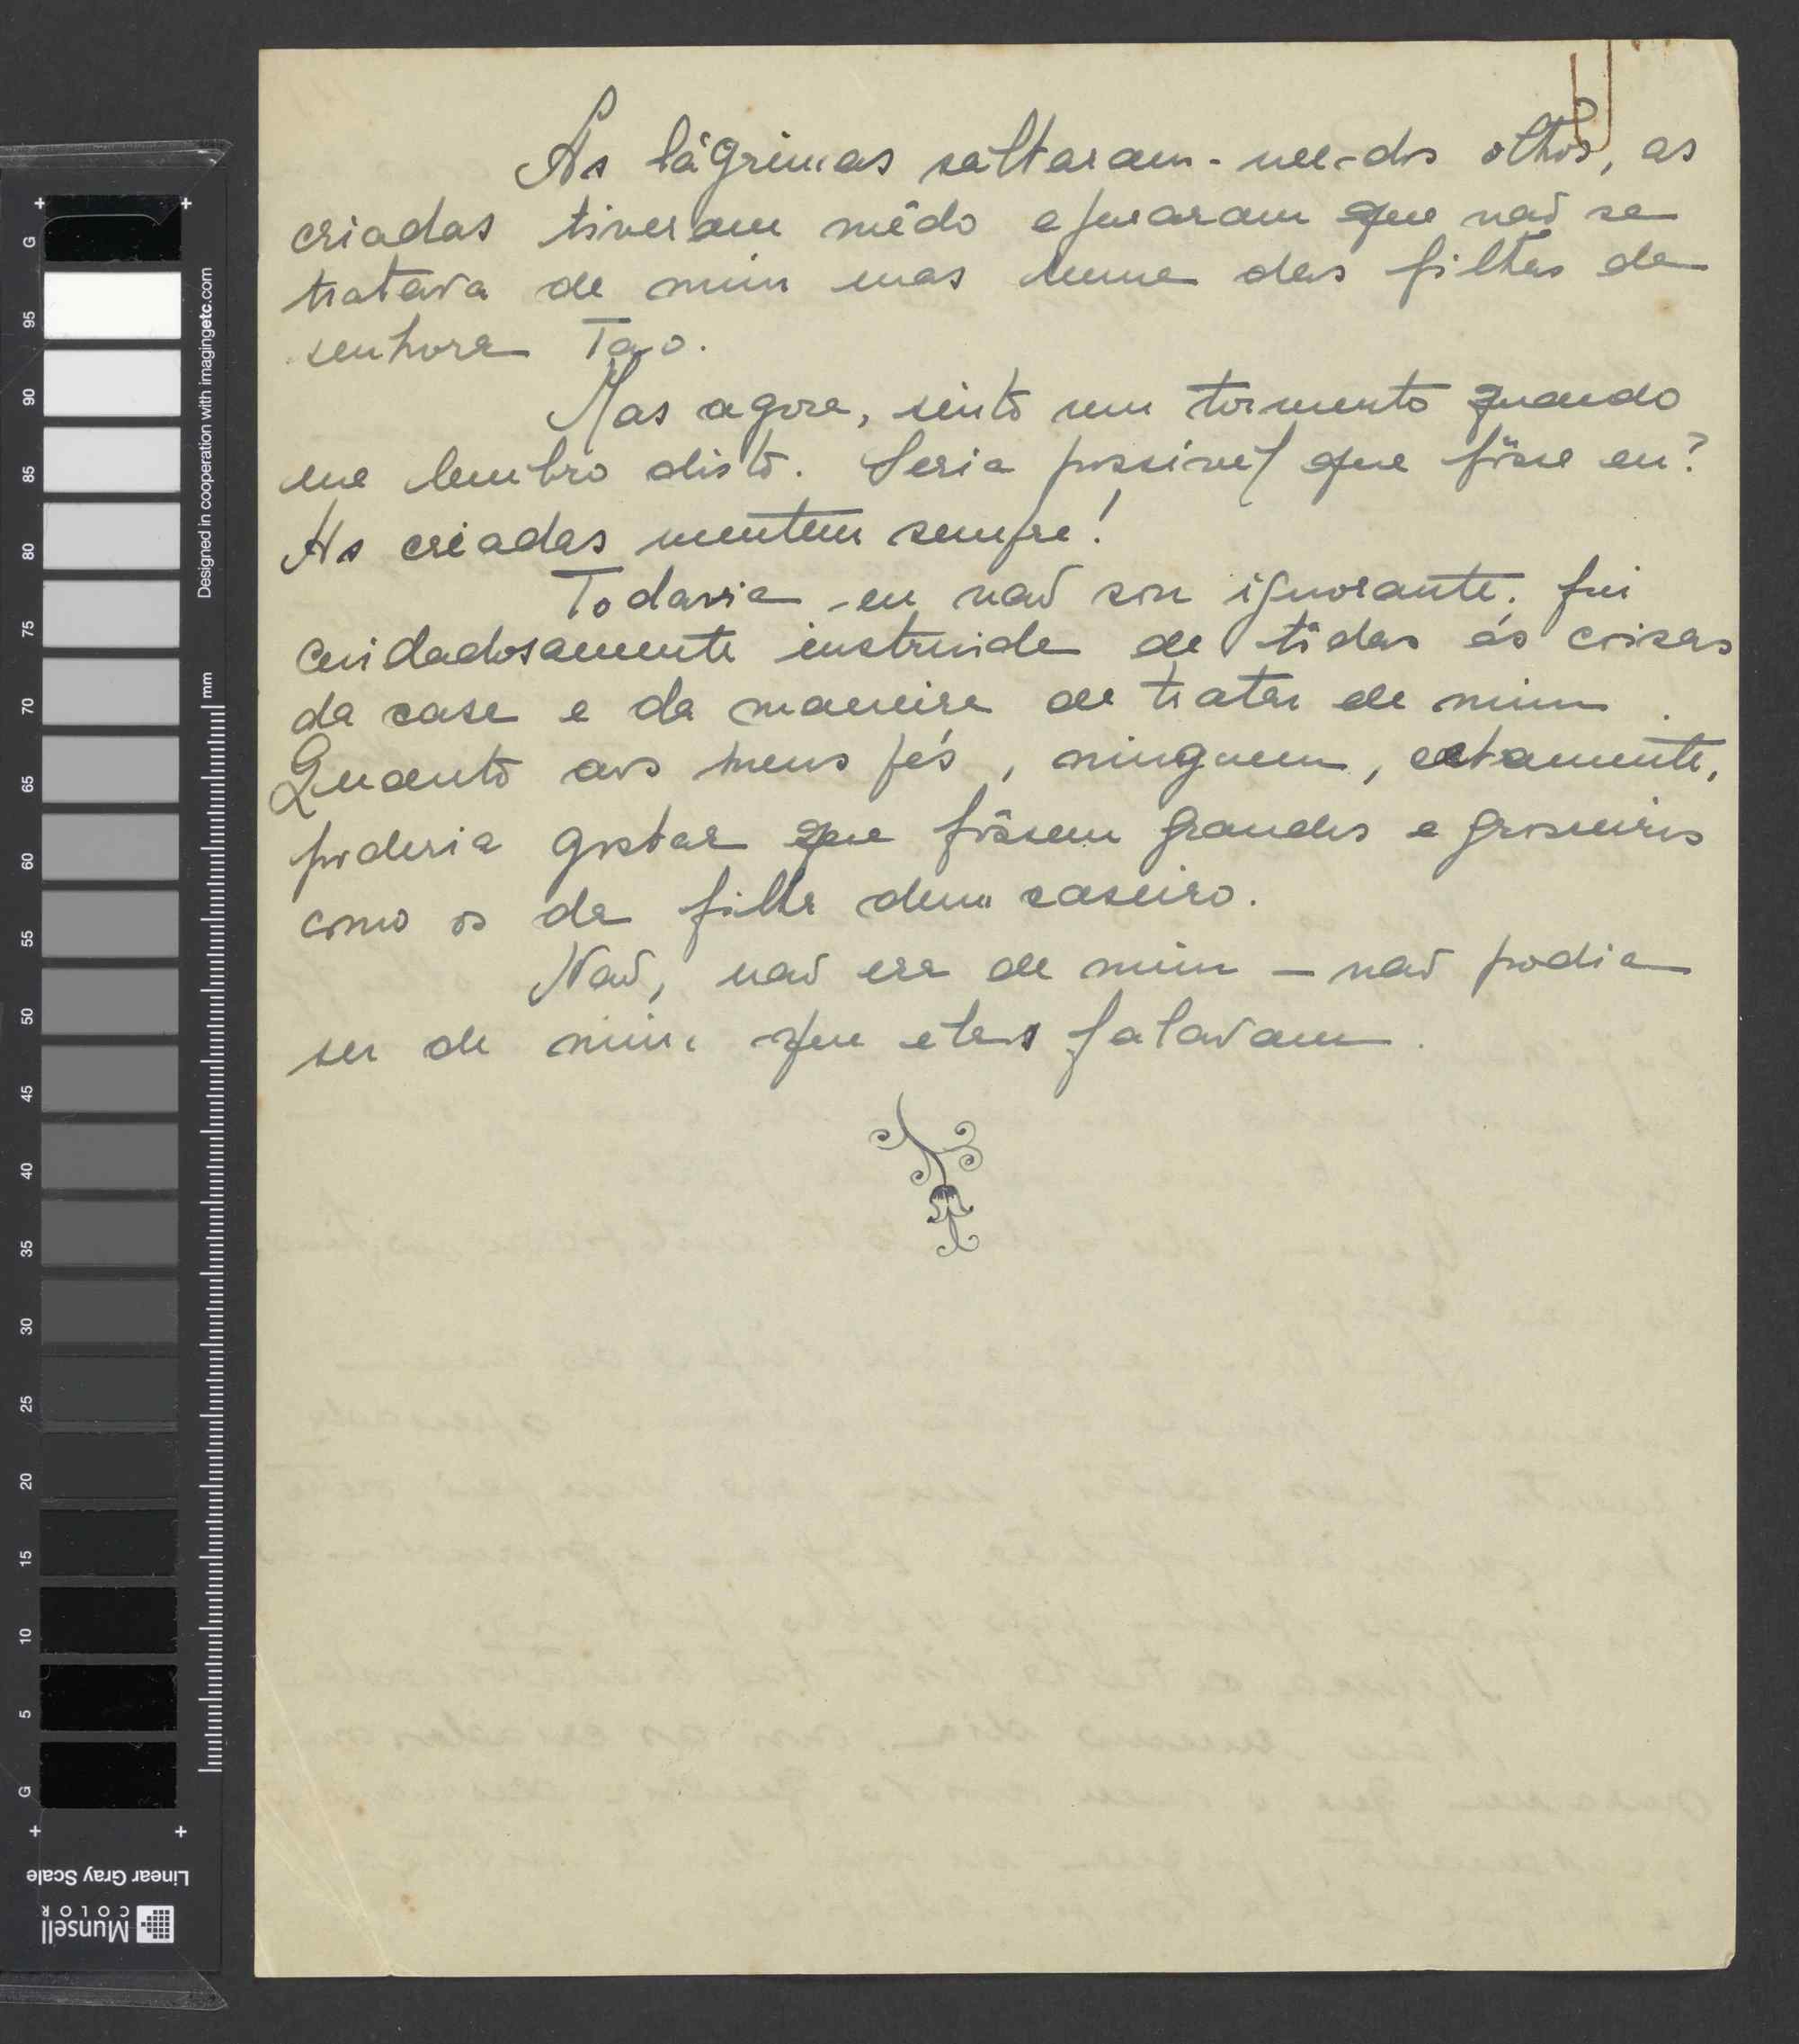 As lágrimas saltaram-me dos olhos, as
criadas tiveram mêdo e juraram que não se
tratava de mim mas duma das filhas da
senhora Tao.
Mas agora, sinto um tormento quando
me lembro disto. Seria possivel que fôsse eu?
As criadas mentem sempre!
Todavia eu não sou ignorante. fui
cuidadosamente instruida de tôdas as coisas
da casa e da maneira de tratar de mim.
Quanto aos meus pés, ninguem, certamente,
poderia gostar que fôssem grandes e grosseiros
como os da filha dum caseiro.
Não, não era de mim – não podia
ser de mim que elas falavam.
G
95
90
85
80
75
70
65
60
55
50
45
40
35
30
25
20
15
10
5
G
Designed in cooperation with imagingetc.com
mm
Linear Gray Scale
Munsell
COLOR